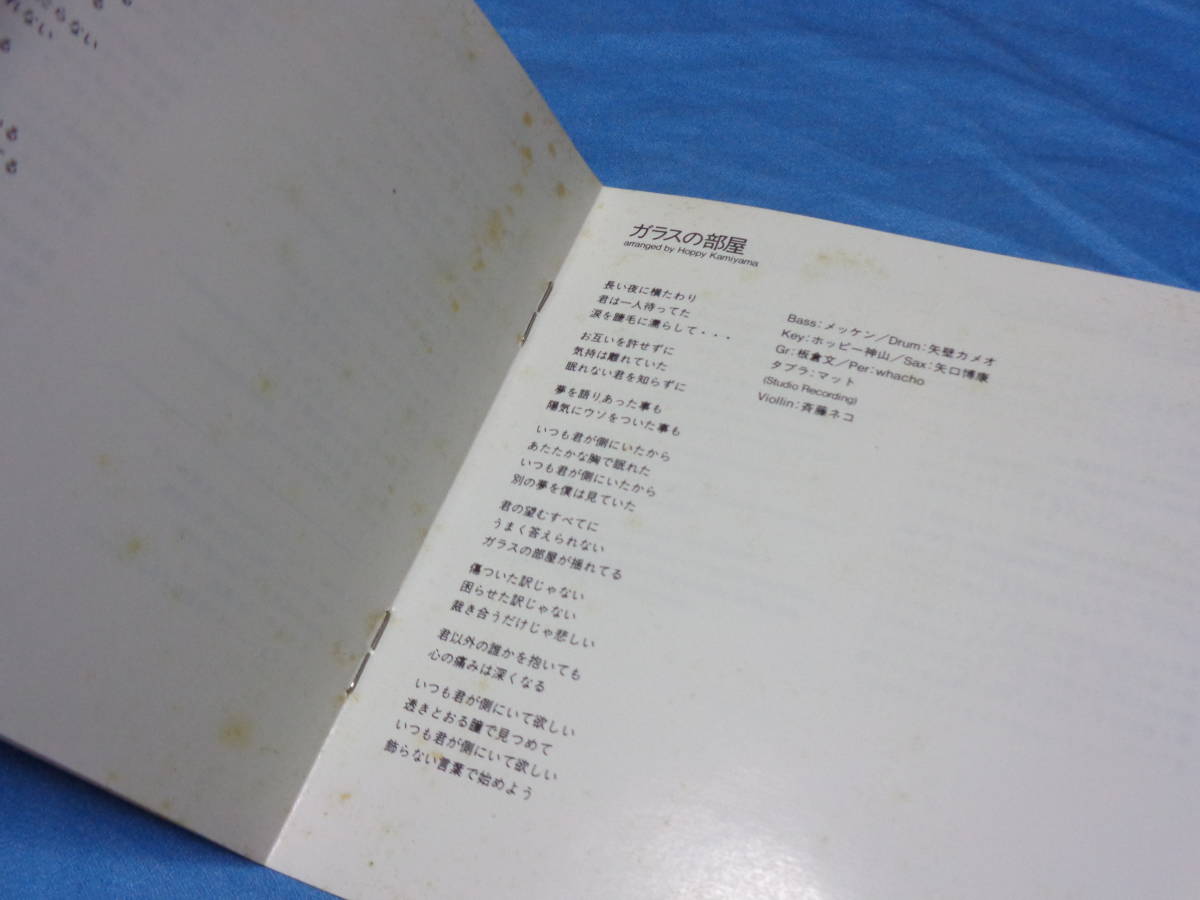 らない
れない
る
る
る
ガラスの部屋
arranged by Hoppy Kamiyama
長い夜に横たわり
君は一人待ってた
涙を睫毛に濡らして・・・
お互いを許せずに
気持は離れていた
眠れない君を知らずに
夢を語りあった事も
陽気にウソをついた事も
いつも君が側にいたから
あたたかな胸で眠れた
いつも君が側にいたから
別の夢を僕は見ていた
君の望むすべてに
うまく答えられない
ガラスの部屋が揺れてる
傷ついた訳じゃない
困らせた訳じゃない
裁き合うだけじゃ悲しい
君以外の誰かを抱いても
心の痛みは深くなる
いつも君が側にいて欲しい
透きとおる瞳で見つめて
いつも君が側にいて欲しい
飾らない言葉で始めよう
Bass:メッケン/Drum:矢壁カメオ
Key:ホッピー神山/Sax:矢口博康
Gr:板倉文/Per:whacho
タブラ:マット
(Studio Recording)
Viollin:斉藤ネコ